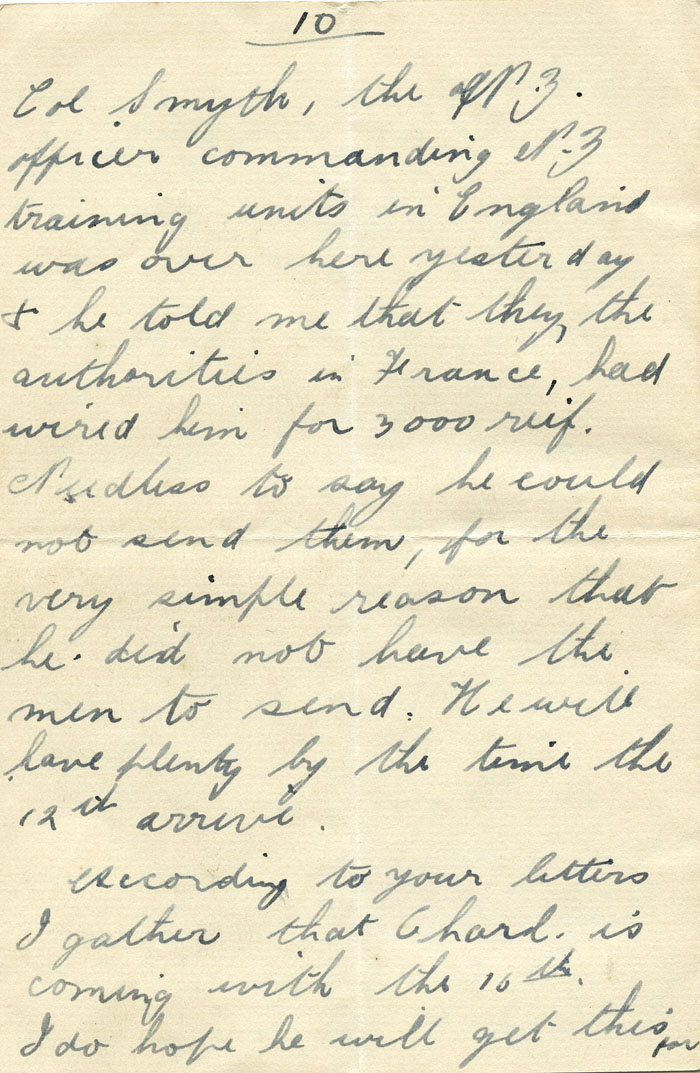 10
Col Smyth, the N.Z.
officer commanding N.Z
training units in England
was over here yesterday
& he told me that they, the
authorities in France, had
wired him for 3000 reif.
Needless to say he could
not send them, for the
very simple reason that
he did not have the
men to send. He will
have plenty by the time the
12th arrive.
According to your letters
I gather that Chard. is
coming with the 16th.
I do hope he will get this
for